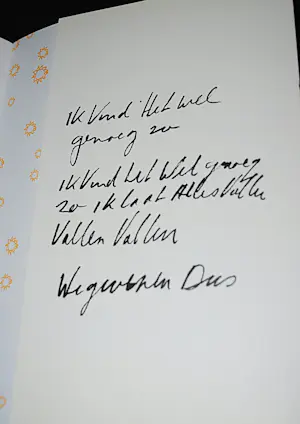 ik vind Het wel
genoeg zo
ik vind het wel genoeg
zo ik laat Alles Vallen
Vallen Vallen
Wegwezen Dus